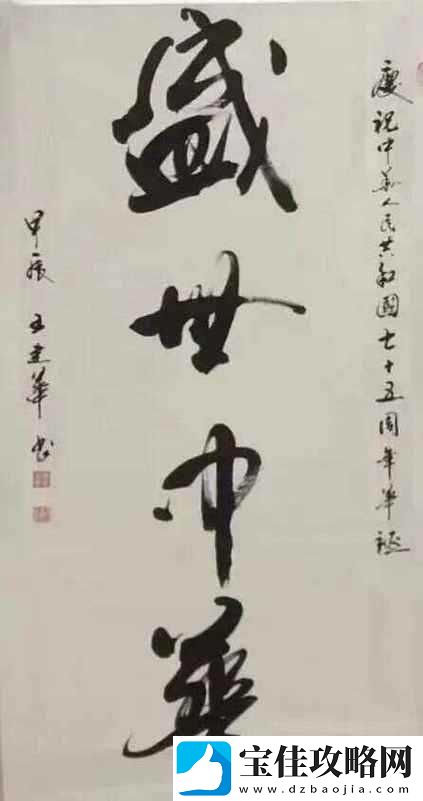 慶祝中华人民共和國七十五周年华诞
盛世中華
甲辰 王建華书
宝佳攻略网
www.dzbaojia.com